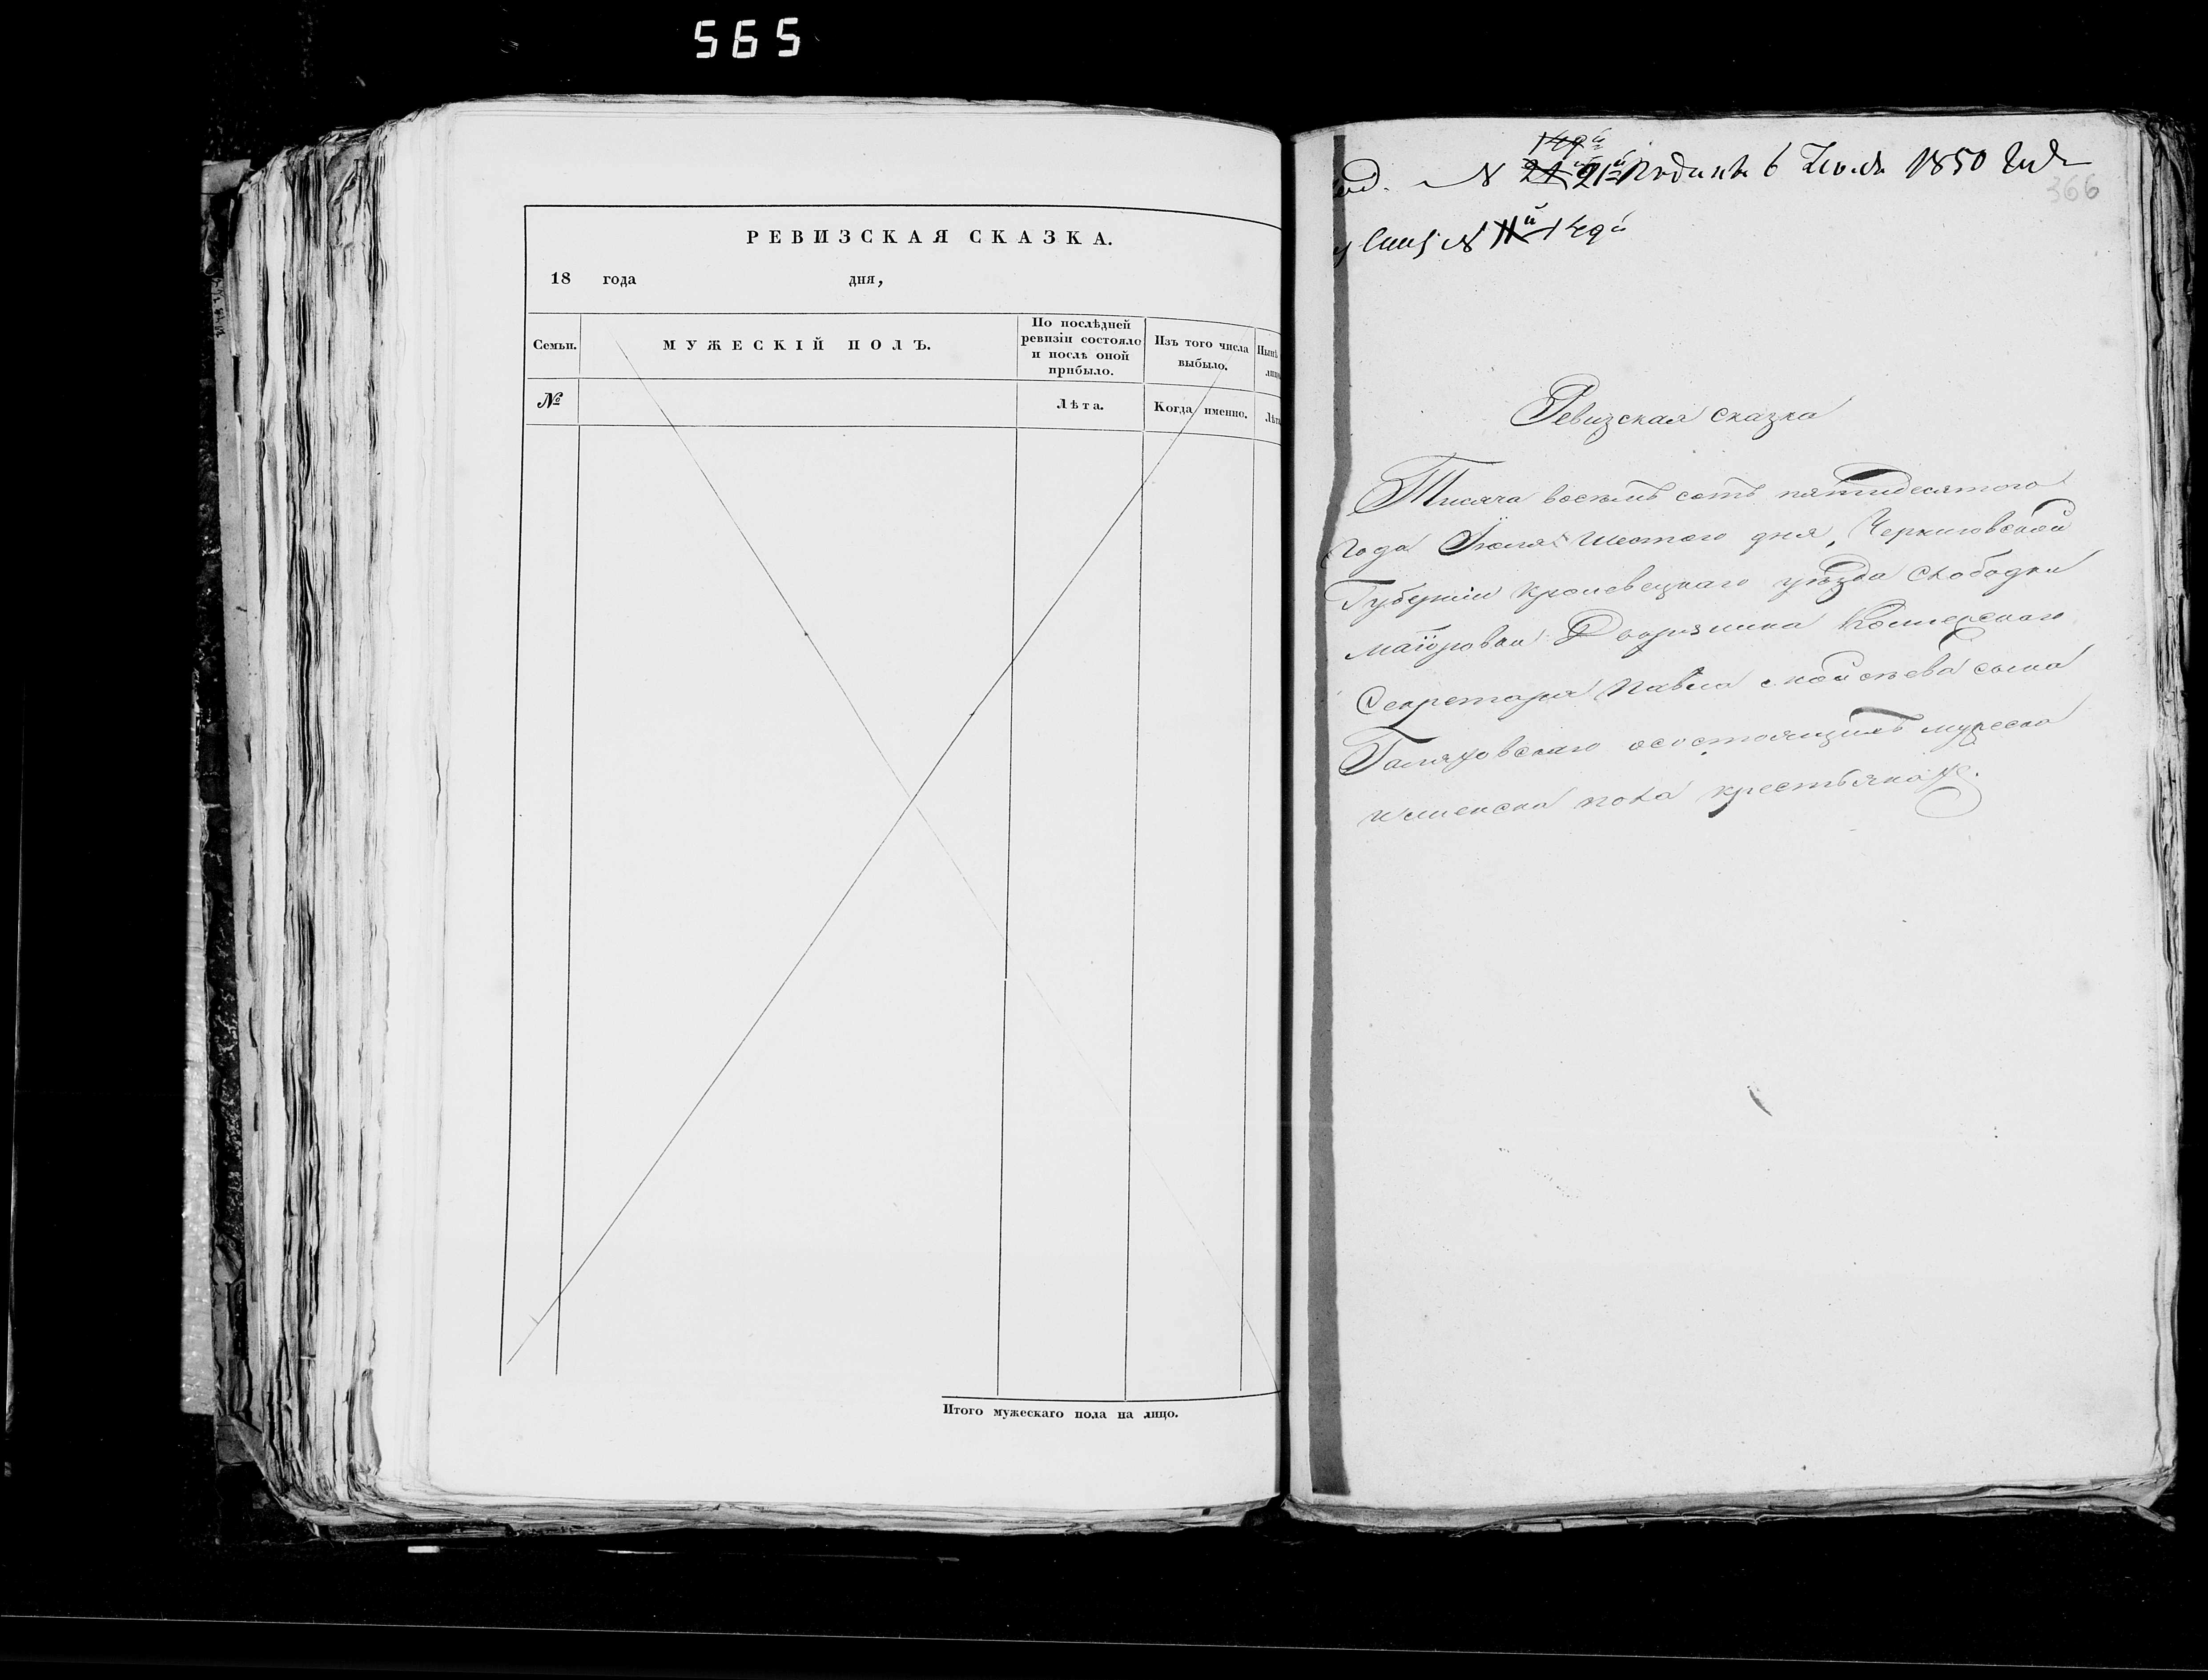 565
РЕВИЗСКАЯ СКАЗКА.
18 года дня,
Семьи. МУЖЕСКІЙ ПОЛЪ. По послѣдней ревизіи состояло и послѣ оной прибыло. Изъ того числа выбыло.
№ Лѣта. Когда именно.
Итого мужескаго пола на лицо.
149й
№ 21й Подана 6 Июля 1850 Года
366
№ 11й 149й
Ревизская сказка
Тисяча восемь сотъ пятидесятого
года Іюля шестого дня, Черниговской
Губерніи Кролевецкаго уѣзда Слободки
маіоровки Дворянина
Секретаря Павла сына
осостоящихъ мужеска
иженска пола крестьянахъ.